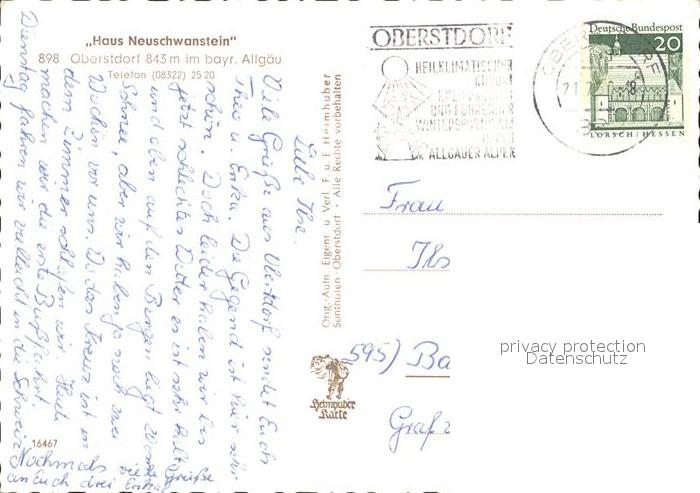 „Haus Neuschwanstein"
898 Oberstdorf 843 m im bayr. Allgäu
Telefon (08322) 25 20
Liebe Ilse.
Viele Grüße aus Oberstdorf sendet Euch
Theo u. Erika. Die Gegend ist hier sehr
schön. Doch leider haben wir bis
jetzt schlechtes Wetter es ist sehr kalt
und oben auf den Bergen liegt
Schnee, aber wir haben ja noch zwei
Wochen vor uns. Wo das Kreuz ist in
dem Zimmer schlafen wir. Heute
machen wir die erste Busfahrt.
Dienstag fahren wir vielleicht in die Schweiz
Nochmals viele Grüße
an Euch drei Erika
16467
Orig.-Aufn. Eigent. u. Verl. F. u. E. Heimhuber
Sonthofen - Oberstdorf - Alle Rechte vorbehalten
Heimhuber
Karte
OBERSTDORF
HEILKLIMATISCHER
KURORT
WINTERSPORTPLATZ
ALLGÄUER ALPEN
OBERSTDORF
Deutsche Bundespost
20
LORSCH/HESSEN
Frau
Ils
595) Ba
Graf
privacy protection
Datenschutz